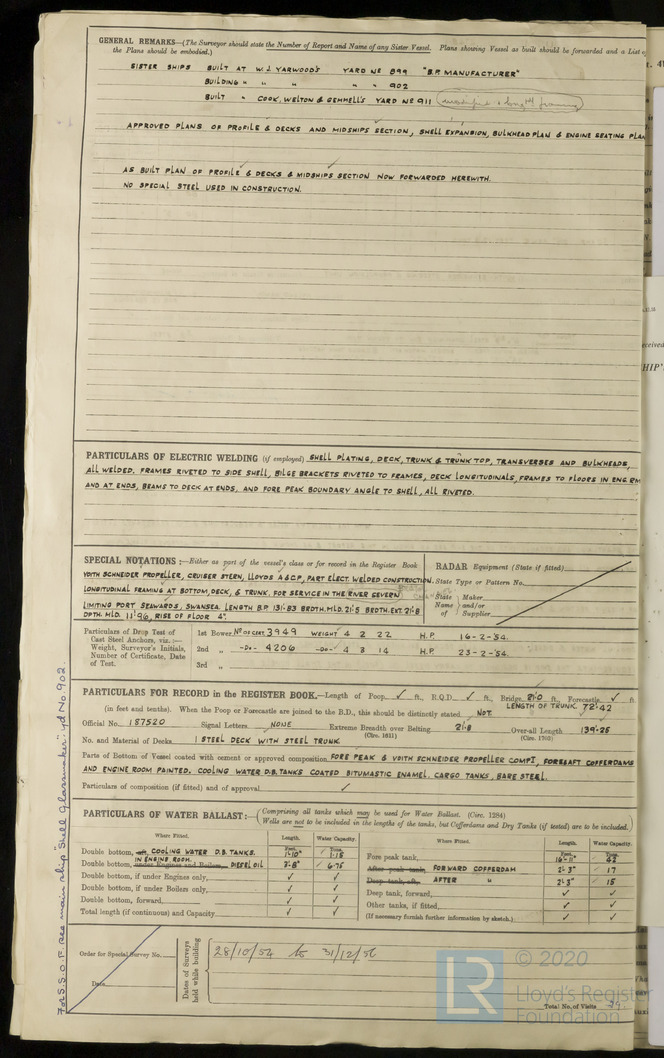 GENERAL REMARKS—(The Surveyor should state the Number of Report and Name of any Sister Vessel. Plans showing Vessel as built should be forwarded and a List of
the Plans should be embodied.)
SISTER SHIPS BUILT AT W. J. YARWOOD'S YARD No 899 "B.P. MANUFACTURER"
BUILDING " " " " " 902
BUILT " COOK, WELTON & GEMMELL'S YARD No 911
APPROVED PLANS OF PROFILE & DECKS AND MIDSHIPS SECTION, SHELL EXPANSION, BULKHEAD PLAN & ENGINE SEATING PLAN
AS BUILT PLAN OF PROFILE & DECKS & MIDSHIPS SECTION NOW FORWARDED HEREWITH.
NO SPECIAL STEEL USED IN CONSTRUCTION.
PARTICULARS OF ELECTRIC WELDING (if employed) SHELL PLATING, DECK, TRUNK & TRUNK TOP, TRANSVERSES AND BULKHEADS,
ALL WELDED. FRAMES RIVETED TO SIDE SHELL, BILGE BRACKETS RIVETED TO FRAMES, DECK LONGITUDINALS, FRAMES TO FLOORS IN ENG. RM
AND AT ENDS, BEAMS TO DECK AT ENDS, AND FORE PEAK BOUNDARY ANGLE TO SHELL, ALL RIVETED.
SPECIAL NOTATIONS:—Either as part of the vessel's class or for record in the Register Book
VOITH SCHNEIDER PROPELLER, CRUISER STERN, LLOYDS A&CP, PART ELECT. WELDED CONSTRUCTION.
LONGITUDINAL FRAMING AT BOTTOM, DECK, & TRUNK. FOR SERVICE IN THE RIVER SEVERN
LIMITING PORT SEAWARDS, SWANSEA. LENGTH B.P. 131·83 BRDTH. MLD. 21·5 BRDTH. EXT. 21·8
DPTH. MLD. 11·96, RISE OF FLOOR 4".
RADAR Equipment (State if fitted)
State Type or Pattern No.
State Name of Maker and/or Supplier
Particulars of Drop Test of
Cast Steel Anchors, viz.:—
Weight, Surveyor's Initials,
Number of Certificate, Date
of Test.
1st Bower No OF CERT. 3949 WEIGHT 4 2 22 H.P. 16-2-54.
2nd " -DO- 4206 -DO- 4 3 14 H.P. 23-2-54.
3rd "
PARTICULARS FOR RECORD in the REGISTER BOOK.—Length of Poop ✓ ft., R.Q.D. ✓ ft., Bridge 21·0 ft., Forecastle ✓ ft.
LENGTH OF TRUNK 72·42
(in feet and tenths). When the Poop or Forecastle are joined to the B.D., this should be distinctly stated NOT.
Official No. 187520 Signal Letters NONE Extreme Breadth over Belting 21·8 Over-all Length 139·25
(Circ. 1611) (Circ. 1703)
No. and Material of Decks 1 STEEL DECK WITH STEEL TRUNK
Parts of Bottom of Vessel coated with cement or approved composition FORE PEAK & VOITH SCHNEIDER PROPELLER COMPT, FORE & AFT COFFERDAMS
AND ENGINE ROOM PAINTED. COOLING WATER D.B. TANKS COATED BITUMASTIC ENAMEL. CARGO TANKS, BARE STEEL.
Particulars of composition (if fitted) and of approval ✓
PARTICULARS OF WATER BALLAST:— (Comprising all tanks which may be used for Water Ballast. (Circ. 1284)
Wells are not to be included in the lengths of the tanks, but Cofferdams and Dry Tanks (if tested) are to be included.)
Where Fitted. Length. Water Capacity.
Feet. Tons.
Double bottom, aft, COOLING WATER D.B. TANKS. 1'-10" 1·15
IN ENGINE ROOM.
Double bottom, under Engines and Boilers, DIESEL OIL 2'-8" 6·75
Double bottom, if under Engines only, ✓ ✓
Double bottom, if under Boilers only, ✓ ✓
Double bottom, forward, ✓ ✓
Total length (if continuous) and Capacity ✓ ✓
Where Fitted. Length. Water Capacity.
Feet. Tons.
Fore peak tank, 16'-11" 42
After peak tank, FORWARD COFFERDAM 2'-3" 17
Deep tank, aft, AFTER " 2'-3" 15
Deep tank, forward, ✓ ✓
Other tanks, if fitted, ✓ ✓
(If necessary furnish further information by sketch.) ✓ ✓
Order for Special Survey No.
Date
Dates of Surveys held while building
28/10/54 to 31/12/56
Total No. of Visits
For S.S.O.F. see main ship "Shell Glassmaker" yd No. 902
© 2020
LR
Lloyd's Register
Foundation